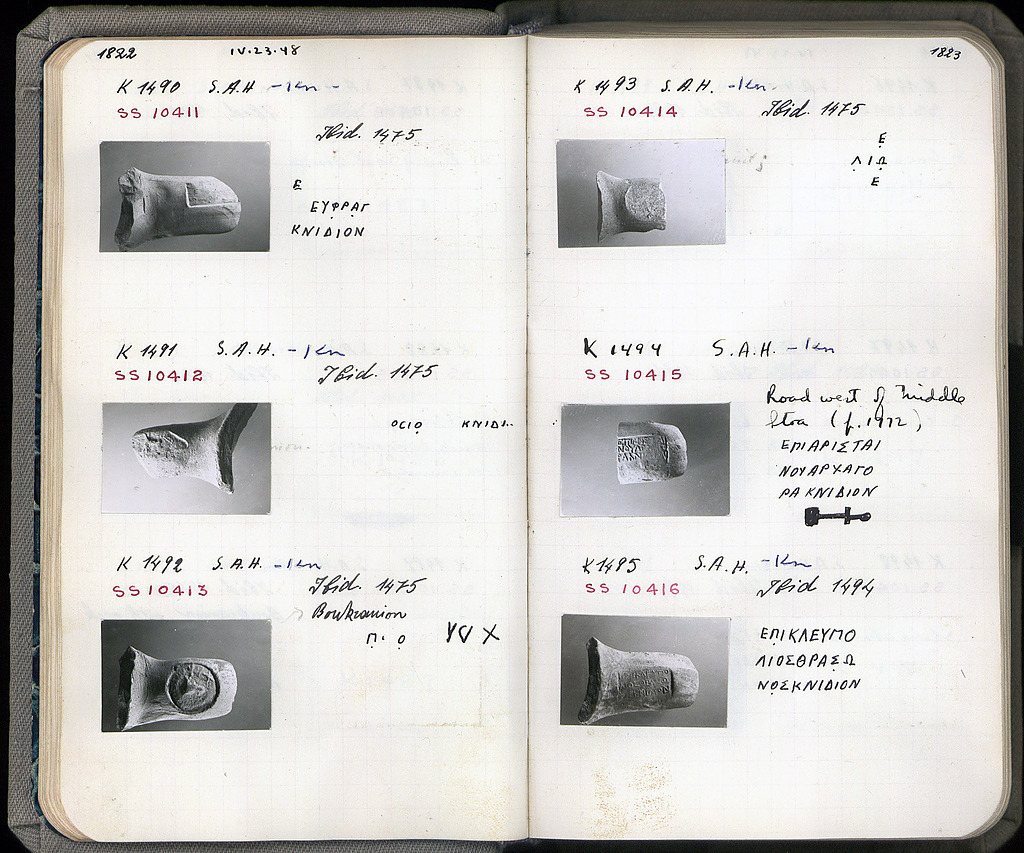 1822 IV.23.48
K 1490 S.A.H -Kn-
SS 10411
Ibid. 1475
Ε
ΕΥΦΡΑΓ
ΚΝΙΔΙΟΝ
K 1491 S.A.H. -Kn
SS 10412 Ibid. 1475
ΟΣΙΟ ΚΝΙΔΙ..
K 1492 S.A.H. -Kn
SS 10413 Ibid. 1475
Boukranion
Π. Ο
1823
K 1493 S.A.H. -Kn-
SS 10414 Ibid. 1475
Ε
ΛΙΩ
Ε
K 1494 S.A.H. -Kn
SS 10415
Road west of Middle
Stoa (p. 1972)
ΕΠΙΑΡΙΣΤΑΙ
ΝΟΥΑΡΧΑΓΟ
ΡΑ ΚΝΙΔΙΟΝ
K 1495 S.A.H. -Kn
SS 10416 Ibid 1494
ΕΠΙΚΛΕΥΠΟ
ΛΙΟΣΘΡΑΣΩ
ΝΟΣΚΝΙΔΙΟΝ